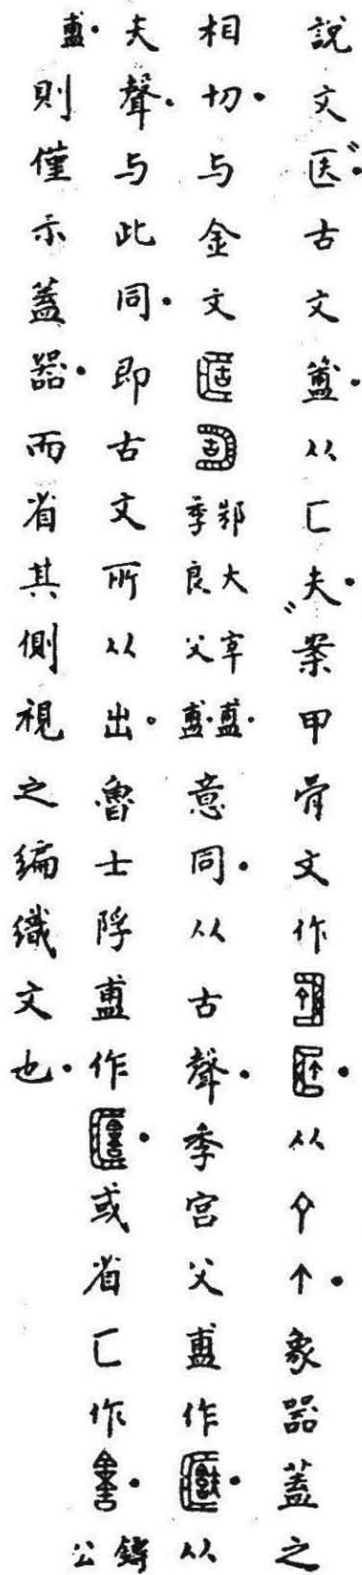 說文〝医・古文簠・从匚夫・〞案甲骨文作・从↑・象器蓋之
相切・与金文邾大宰盙・季良父盙・意同・从古聲・季宮父盙作・从
夫聲・与此同・即古文所从出・魯士浮盙作・或省匚作・鑄公
盙・則僅示蓋器・而省其側視之編織文也・